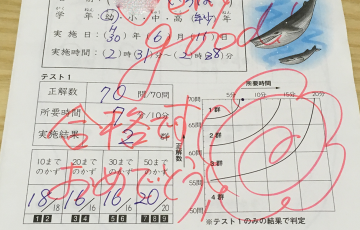 good!
学 年 幼・小・中・高(年少)年
実施日:H30年6月11日
実施時間:(2)時(31)分~(2)時(38)分
テスト1
正解数 70 問/70問
所要時間 分/10分
実施結果 2 群
合格
おめでとう
10までのかず 20までのかず 30までのかず 50までのかず
18/18 16/16 16/16 20/20
1 2 3 4 5 6 7 8 9
所要時間
5分 10分 15分 20分
正解数
70問 65問 60問 55問 50問
1群
2群
3群
4群
※テスト1のみの結果で判定